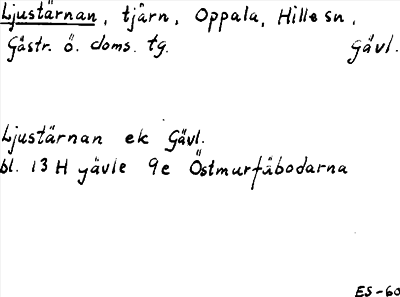 Ljustärnan, tjärn, Oppala, Hille sn,
Gästr. ö. doms. tg. Gävl.
Ljustärnan ek Gävl.
bl. 13 H yävle 9e Östmurfäbodarna
ES-60